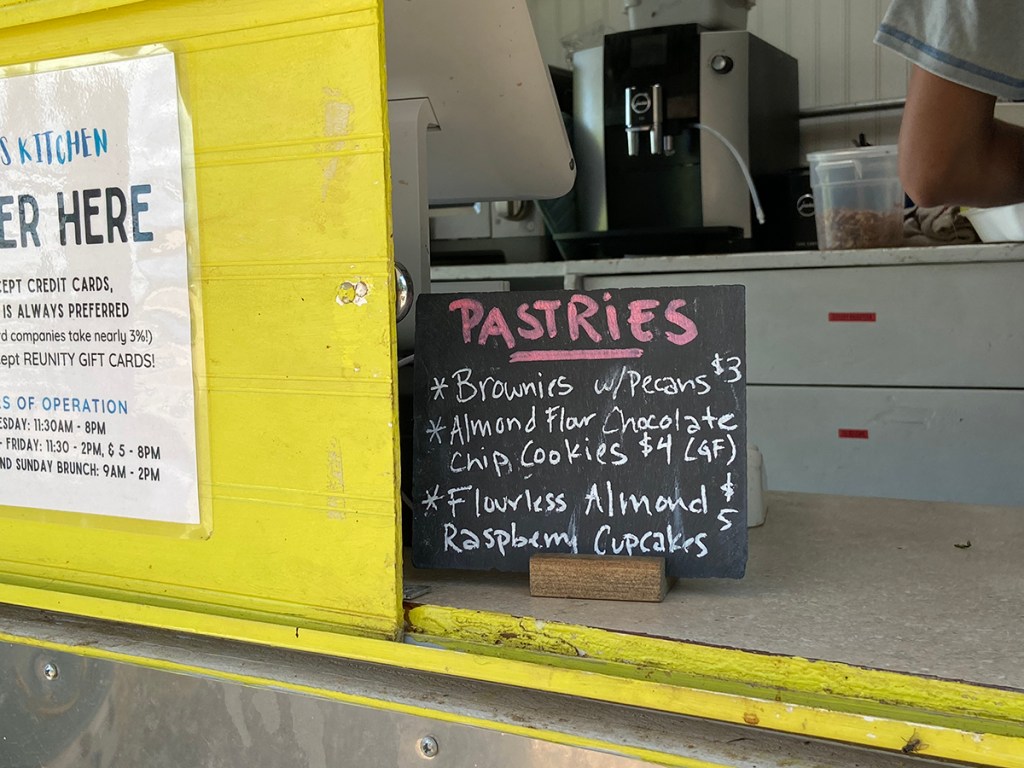 S KITCHEN
ER HERE
CEPT CREDIT CARDS,
IS ALWAYS PREFERRED
rd companies take nearly 3%!)
cept REUNITY GIFT CARDS!
S OF OPERATION
ESDAY: 11:30AM - 8PM
- FRIDAY: 11:30 - 2PM, $ 5 - 8PM
ND SUNDAY BRUNCH: 9AM - 2PM
PASTRiES
* Brownies w/Pecans $3
* Almond Flour Chocolate
Chip Cookies $4 (GF)
* Flourless Almond $5
Raspberry Cupcakes